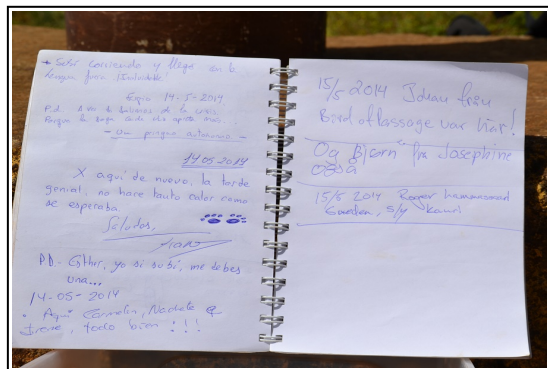 * Subí corriendo y llegé con la
lengua fuera. Inolvidable
14-5-2014
P.d. A ver si salimos de la crisis
Porque la soga cada dia apreta mas...
- Un pringao asturiano -
14 05 2014
X aqui de nuevo, la tarde
genial, no hace tanto calor como
se esperaba.
Saludos,
PD.- Esther, yo si subí, me debes
una...
14-05-2014
• Aquí Carmelin, Nachete e
Irene, todo bien !!!
15/5 2014 Johan från
Bird of Passage var här!
Og Bjørn fra Josephine
også
15/5 2014 Roger
Sweden, S/Y Kauri